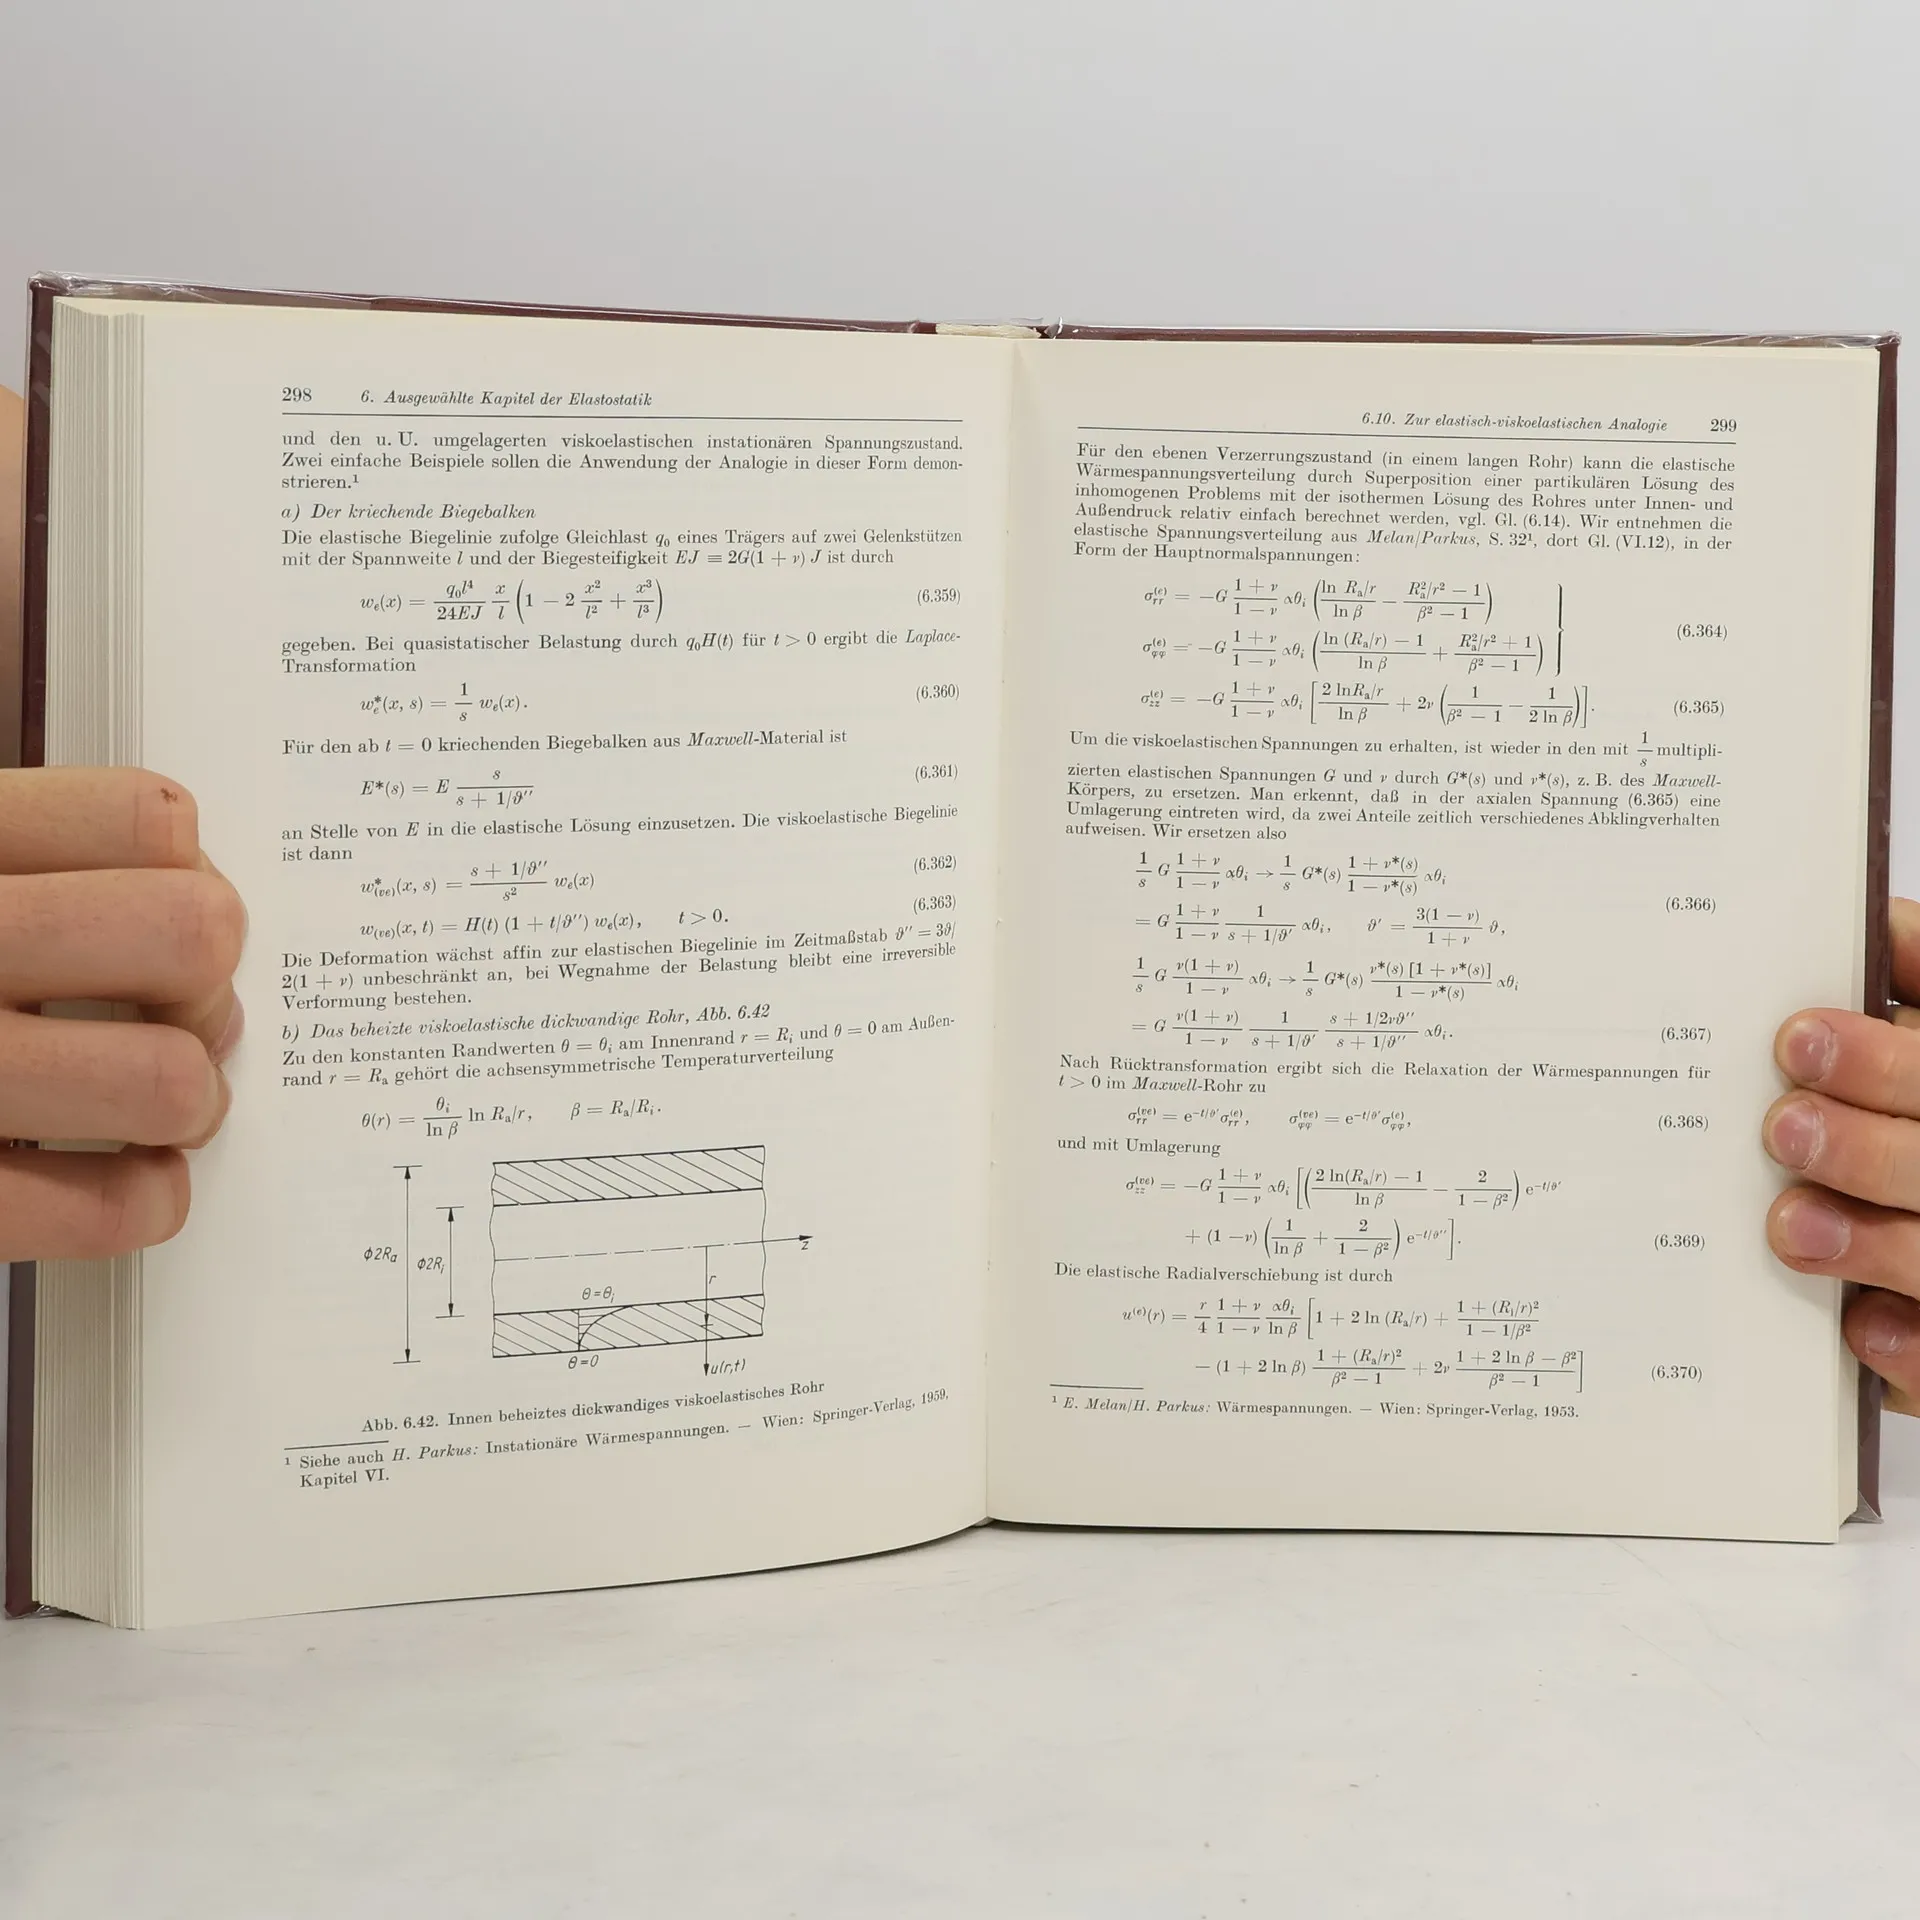 298 6. Ausgewählte Kapitel der Elastostatik
und den u. U. umgelagerten viskoelastischen instationären Spannungszustand.
Zwei einfache Beispiele sollen die Anwendung der Analogie in dieser Form demon-
strieren.¹
a) Der kriechende Biegebalken
Die elastische Biegelinie zufolge Gleichlast q₀ eines Trägers auf zwei Gelenkstützen
mit der Spannweite l und der Biegesteifigkeit EJ ≡ 2G(1 + ν) J ist durch
wₑ(x) = q₀l⁴/24EJ x/l (1 − 2 x²/l² + x³/l³) (6.359)
gegeben. Bei quasistatischer Belastung durch q₀H(t) für t > 0 ergibt die Laplace-
Transformation
wₑ*(x, s) = 1/s wₑ(x). (6.360)
Für den ab t = 0 kriechenden Biegebalken aus Maxwell-Material ist
E*(s) = E s/(s + 1/ϑ′′) (6.361)
an Stelle von E in die elastische Lösung einzusetzen. Die viskoelastische Biegelinie
ist dann
w*(ve)(x, s) = (s + 1/ϑ′′)/s² wₑ(x) (6.362)
w(ve)(x, t) = H(t) (1 + t/ϑ′′) wₑ(x), t > 0. (6.363)
Die Deformation wächst affin zur elastischen Biegelinie im Zeitmaßstab ϑ′′ = 3ϑ/
2(1 + ν) unbeschränkt an, bei Wegnahme der Belastung bleibt eine irreversible
Verformung bestehen.
b) Das beheizte viskoelastische dickwandige Rohr, Abb. 6.42
Zu den konstanten Randwerten θ = θᵢ am Innenrand r = Rᵢ und θ = 0 am Außen-
rand r = Rₐ gehört die achsensymmetrische Temperaturverteilung
θ(r) = θᵢ/ln β ln Rₐ/r, β = Rₐ/Rᵢ.
ϕ2Rₐ
ϕ2Rᵢ
z
r
θ=θᵢ
θ=0
u(r,t)
Abb. 6.42. Innen beheiztes dickwandiges viskoelastisches Rohr
¹ Siehe auch H. Parkus: Instationäre Wärmespannungen. — Wien: Springer-Verlag, 1959,
Kapitel VI.
6.10. Zur elastisch-viskoelastischen Analogie 299
Für den ebenen Verzerrungszustand (in einem langen Rohr) kann die elastische
Wärmespannungsverteilung durch Superposition einer partikulären Lösung des
inhomogenen Problems mit der isothermen Lösung des Rohres unter Innen- und
Außendruck relativ einfach berechnet werden, vgl. Gl. (6.14). Wir entnehmen die
elastische Spannungsverteilung aus Melan/Parkus, S. 32¹, dort Gl. (VI.12), in der
Form der Hauptnormalspannungen:
σᵣᵣ⁽ᵉ⁾ = −G (1 + ν)/(1 − ν) αθᵢ (ln Rₐ/r/ln β − (Rₐ²/r² − 1)/(β² − 1))
σφφ⁽ᵉ⁾ = −G (1 + ν)/(1 − ν) αθᵢ ((ln (Rₐ/r) − 1)/ln β + (Rₐ²/r² + 1)/(β² − 1)) (6.364)
σzz⁽ᵉ⁾ = −G (1 + ν)/(1 − ν) αθᵢ [2 lnRₐ/r/ln β + 2ν (1/(β² − 1) − 1/(2 ln β))]. (6.365)
Um die viskoelastischen Spannungen zu erhalten, ist wieder in den mit 1/s multipli-
zierten elastischen Spannungen G und ν durch G*(s) und ν*(s), z. B. des Maxwell-
Körpers, zu ersetzen. Man erkennt, daß in der axialen Spannung (6.365) eine
Umlagerung eintreten wird, da zwei Anteile zeitlich verschiedenes Abklingverhalten
aufweisen. Wir ersetzen also
1/s G (1 + ν)/(1 − ν) αθᵢ → 1/s G*(s) (1 + ν*(s))/(1 − ν*(s)) αθᵢ
= G (1 + ν)/(1 − ν) 1/(s + 1/ϑ′) αθᵢ, ϑ′ = 3(1 − ν)/(1 + ν) ϑ, (6.366)
1/s G ν(1 + ν)/(1 − ν) αθᵢ → 1/s G*(s) ν*(s) [1 + ν*(s)]/(1 − ν*(s)) αθᵢ
= G ν(1 + ν)/(1 − ν) 1/(s + 1/ϑ′) (s + 1/2νϑ′′)/(s + 1/ϑ′′) αθᵢ. (6.367)
Nach Rücktransformation ergibt sich die Relaxation der Wärmespannungen für
t > 0 im Maxwell-Rohr zu
σᵣᵣ⁽ᵛᵉ⁾ = e^(−t/ϑ′) σᵣᵣ⁽ᵉ⁾, σφφ⁽ᵛᵉ⁾ = e^(−t/ϑ′) σφφ⁽ᵉ⁾, (6.368)
und mit Umlagerung
σzz⁽ᵛᵉ⁾ = −G (1 + ν)/(1 − ν) αθᵢ [((2 ln(Rₐ/r) − 1)/ln β − 2/(1 − β²)) e^(−t/ϑ′)
+ (1 − ν) (1/ln β + 2/(1 − β²)) e^(−t/ϑ′′)]. (6.369)
Die elastische Radialverschiebung ist durch
u⁽ᵉ⁾(r) = r/4 (1 + ν)/(1 − ν) αθᵢ/ln β [1 + 2 ln (Rₐ/r) + (1 + (Rᵢ/r)²)/(1 − 1/β²)
− (1 + 2 ln β) (1 + (Rₐ/r)²)/(β² − 1) + 2ν (1 + 2 ln β − β²)/(β² − 1)] (6.370)
¹ E. Melan/H. Parkus: Wärmespannungen. — Wien: Springer-Verlag, 1953.